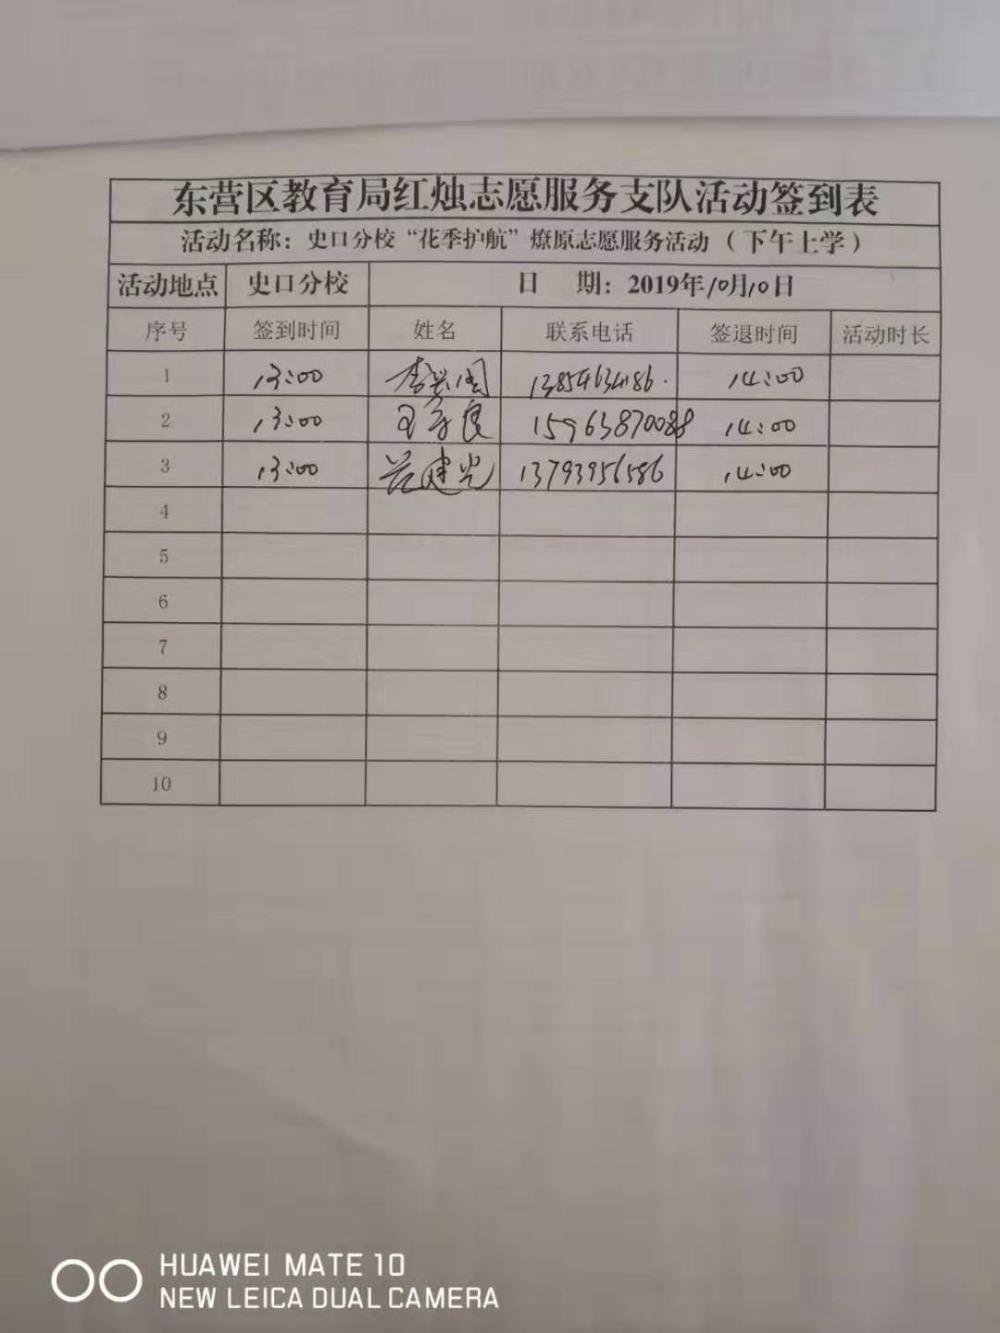 东营区教育局红烛志愿服务支队活动签到表
活动名称：史口分校“花季护航”燎原志愿服务活动（下午上学）
活动地点 史口分校 日 期：2019年10月10日
序号 签到时间 姓名 联系电话 签退时间 活动时长
1 13:00 李兴国 13854634186. 14:00
2 13:00 王字良 15963870088 14:00
3 13:00 建光 13793956586 14:00
4
5
6
7
8
9
10
HUAWEI MATE 10
NEW LEICA DUAL CAMERA